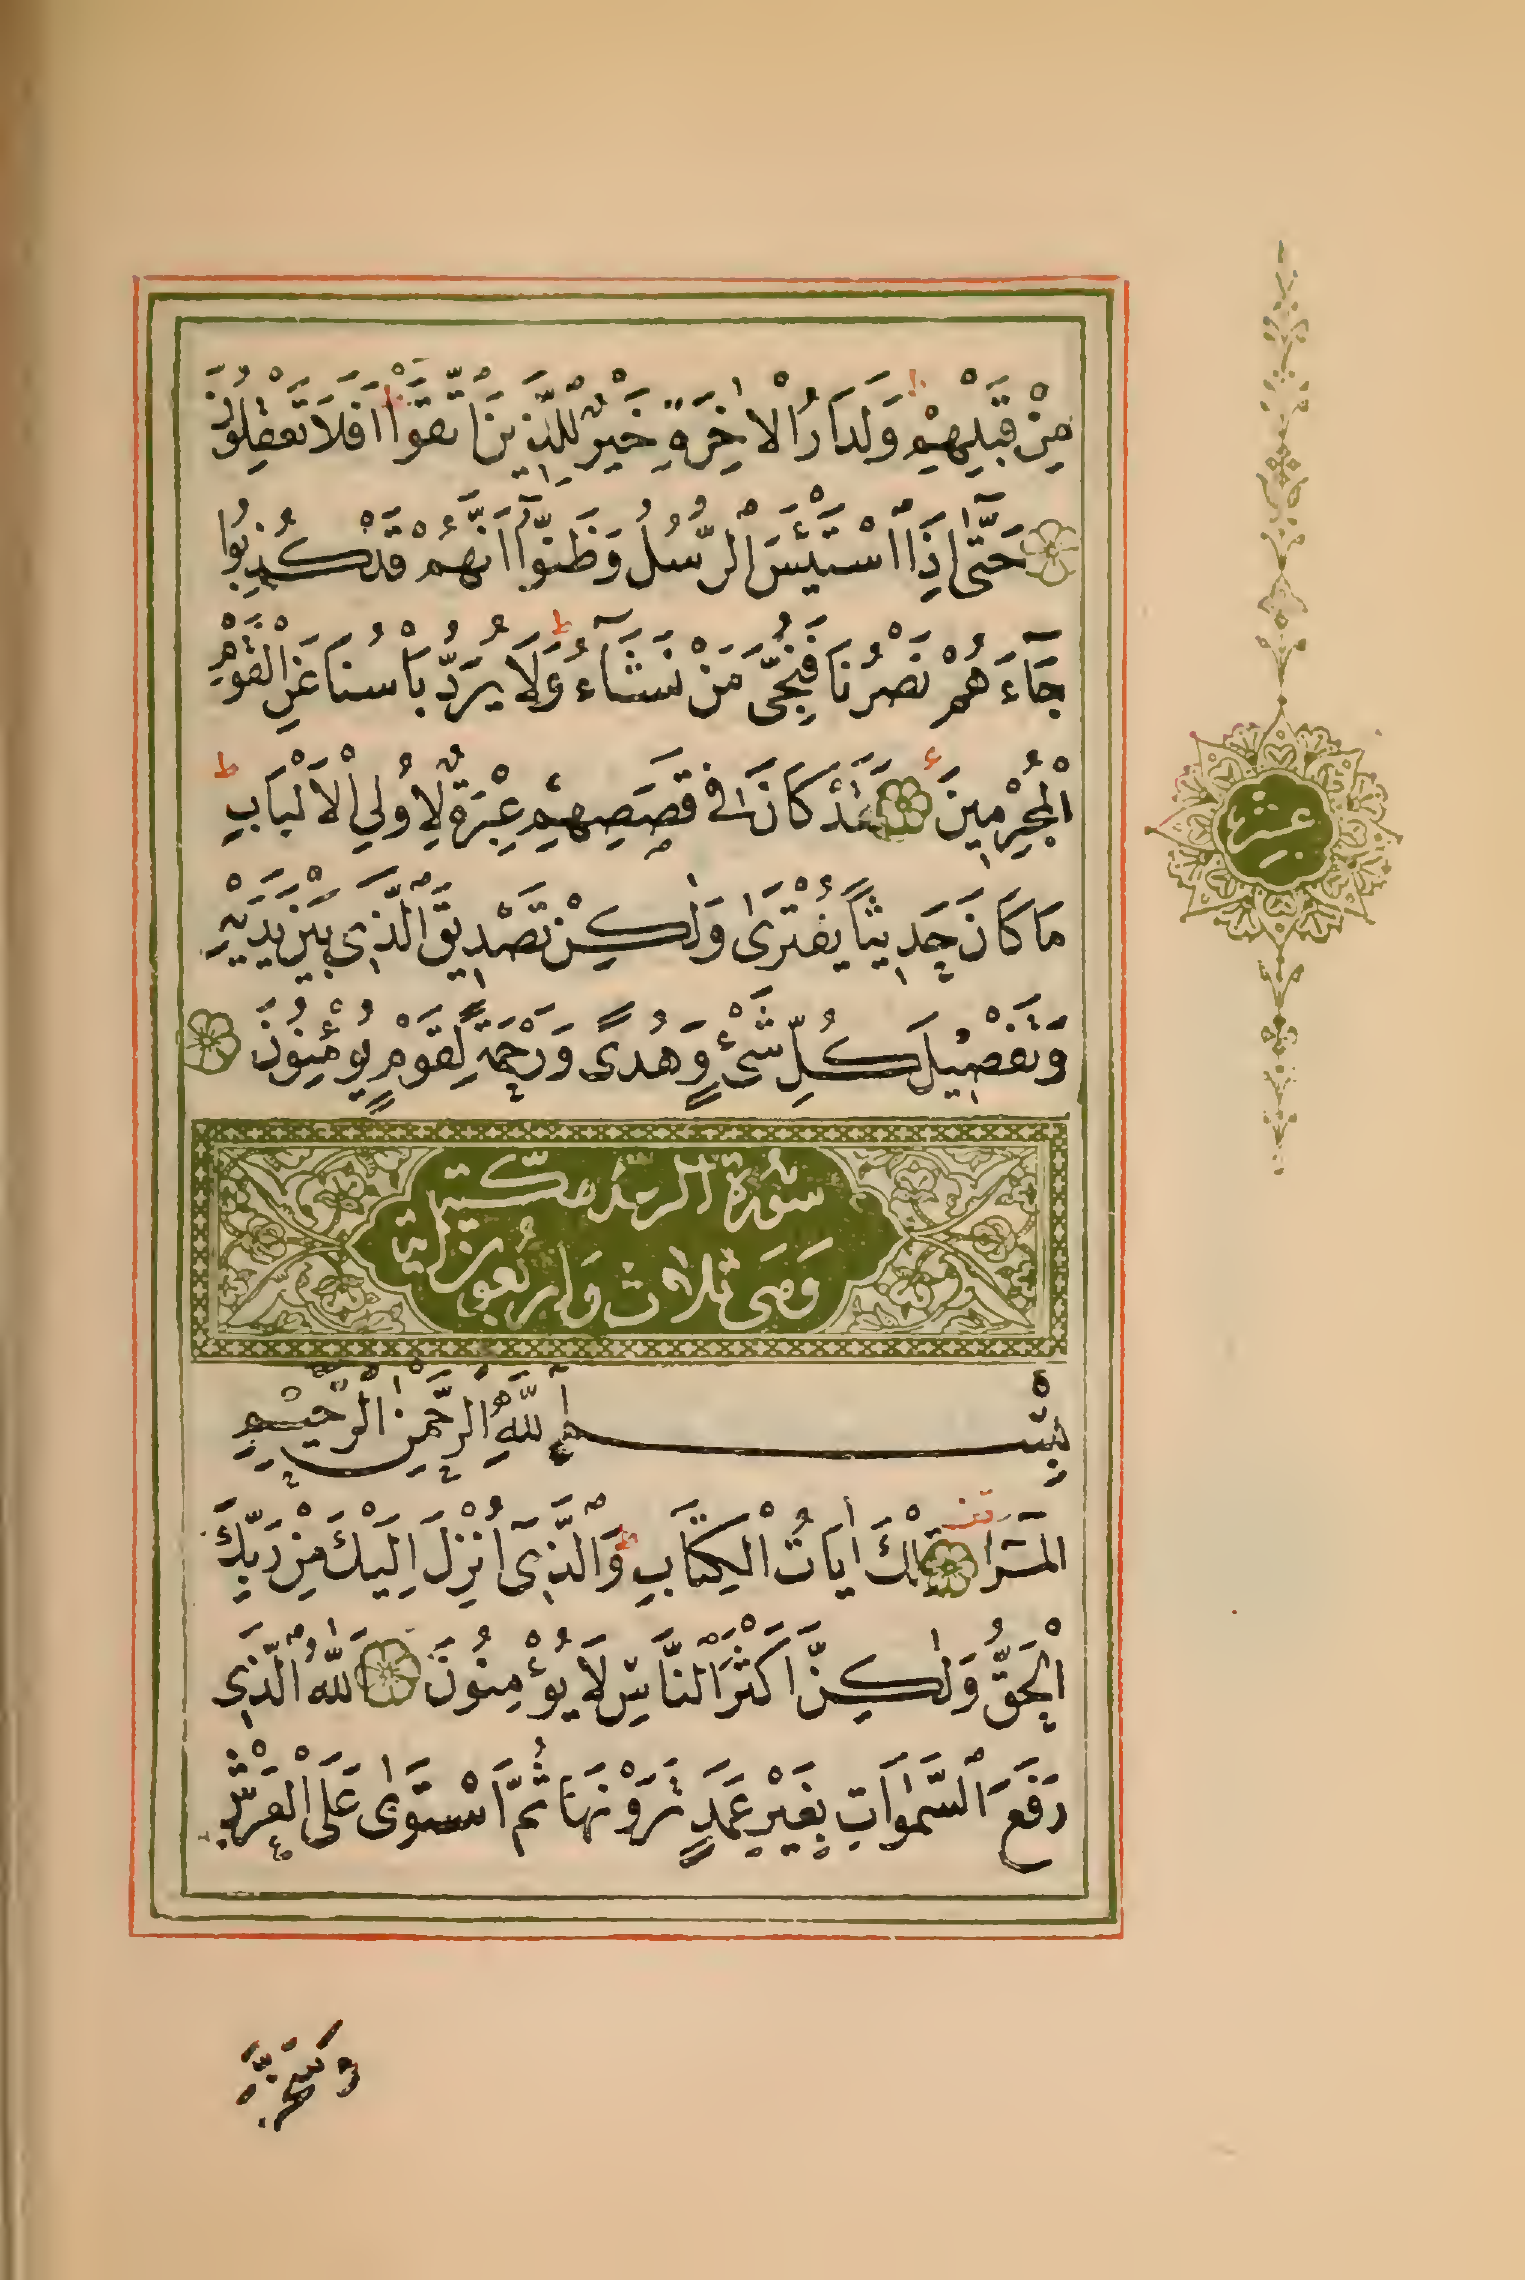 مِنْ قَبْلِهِمْ وَلَدَارُ الْاٰخِرَةِ خَيْرٌ لِلَّذِينَ اتَّقَوْا اَفَلَا تَعْقِلُونَ
حَتّٰٓى اِذَا اسْتَيْـَٔسَ الرُّسُلُ وَظَنُّٓوا اَنَّهُمْ قَدْ كُذِبُوا
جَآءَهُمْ نَصْرُنَا فَنُجِّىَ مَنْ نَشَآءُ ط وَلَا يُرَدُّ بَاْسُنَا عَنِ الْقَوْمِ
الْمُجْرِمِينَ لَقَدْ كَانَ فٖى قَصَصِهِمْ عِبْرَةٌ لِاُولِى الْاَلْبَابِ ط
مَا كَانَ حَدِيثًا يُفْتَرٰى وَلٰكِنْ تَصْدِيقَ الَّذِى بَيْنَ يَدَيْهِ
وَتَفْصِيلَ كُلِّ شَىْءٍ وَهُدًى وَرَحْمَةً لِقَوْمٍ يُؤْمِنُونَ
سُورَةُ الرَّعْدِ مَكِّيَّةٌ
وَهِىَ ثَلَاثٌ وَاَرْبَعُونَ اٰيَةً
عشر
بِسْمِ اللّٰهِ الرَّحْمٰنِ الرَّحِيمِ
الٓمٓرٰ تِلْكَ اٰيَاتُ الْكِتَابِ ط وَالَّذِٓى اُنْزِلَ اِلَيْكَ مِنْ رَبِّكَ
الْحَقُّ وَلٰكِنَّ اَكْثَرَ النَّاسِ لَا يُؤْمِنُونَ اَللّٰهُ الَّذِى
رَفَعَ السَّمٰوَاتِ بِغَيْرِ عَمَدٍ تَرَوْنَهَا ثُمَّ اسْتَوٰى عَلَى الْعَرْشِ
وَسَخَّرَ